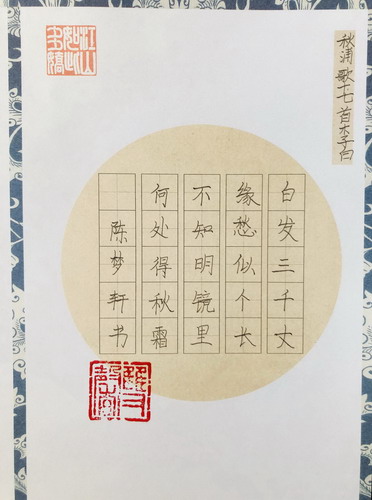 秋浦歌十七首李白
白发三千丈
缘愁似个长
不知明镜里
何处得秋霜
陈梦轩书
江山如此多娇